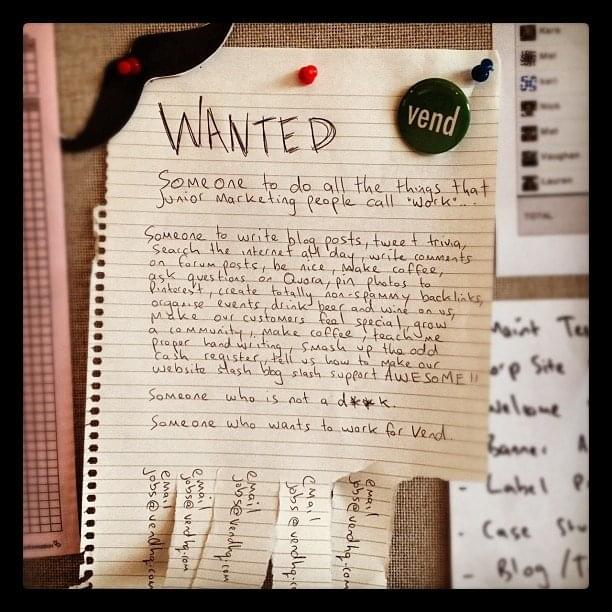 WANTED
vend
Someone to do all the things that
Junior Marketing people call "work"...
Someone to write blog posts, tweet trivia,
search the internet all day, write comments
on forum posts, be nice, make coffee,
ask questions on Quora, pin photos to
Pinterest, create totally non-spammy backlinks,
organise events, drink beer and wine on us,
make our customers feel special, grow
a community, make coffee, teach me
proper handwriting, smash up the odd
cash register, tell us how to make our
website slash blog slash support AWESOME!!
Someone who is not a d**k.
Someone who wants to work for Vend.
email
jobs@vendhq.com
email
jobs@vendhq.com
email
jobs@vendhq.com
email
jobs@vendhq.c
email
jobs@vendhq.com
Vaughan
Lauren
TOTAL
Site
Welcome
Banner A
- Label P
- Case Stu
- Blog / T